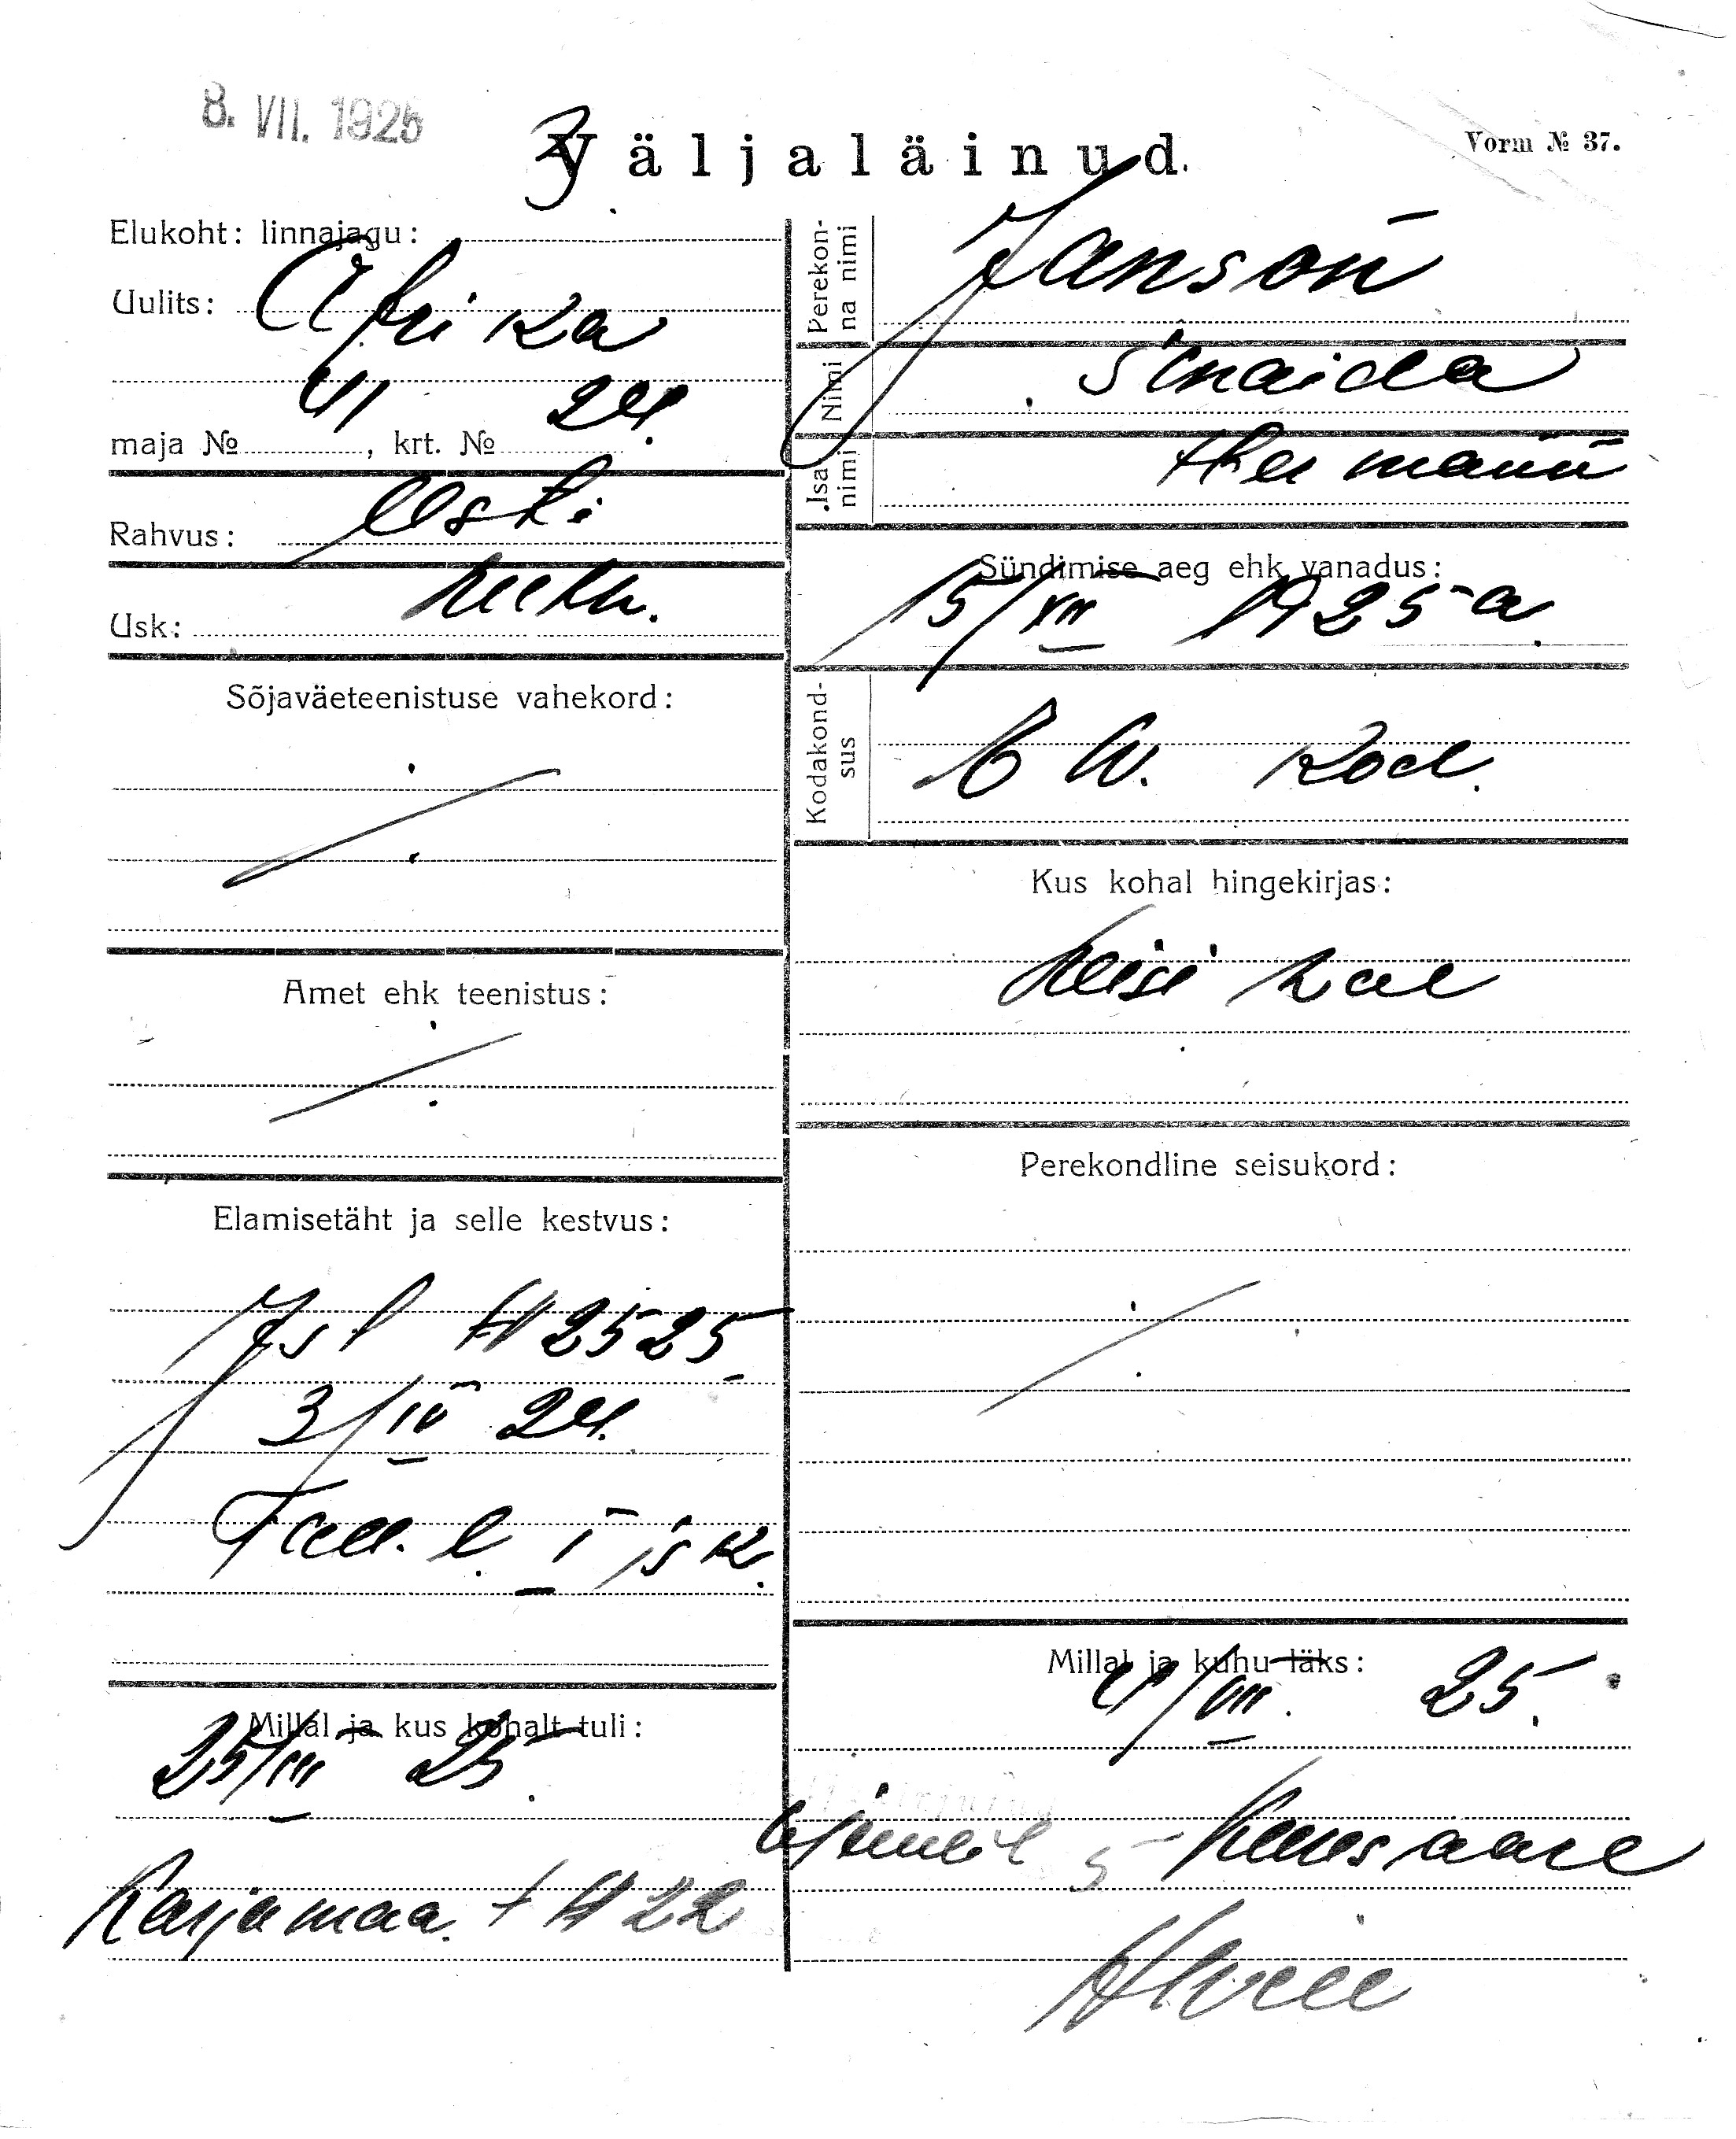 8. VII. 1925
Väljaläinud.
Vorm № 37.
Elukoht: linnajagu:
Uulits: Afrika
maja № 4, krt. № 24.
Rahvus: Esti
Usk: luth.
Sõjaväeteenistuse vahekord:
Amet ehk teenistus:
Elamisetäht ja selle kestvus:
№ 2525
3/IV 24.
Tall. l. I jsk.
Millal ja kus kohalt tuli:
25/III 25.
Karjamaa t № 22
Perekonna nimi
Janson
Nimi
Sinaida
Isa nimi
Hermann
Sündimise aeg ehk vanadus:
15/XII 1925 a.
Kodakondsus
E W. kod.
Kus kohal hingekirjas:
Perekondline seisukord:
Millal ja kuhu läks:
4/VII. 25.
Kuresaare